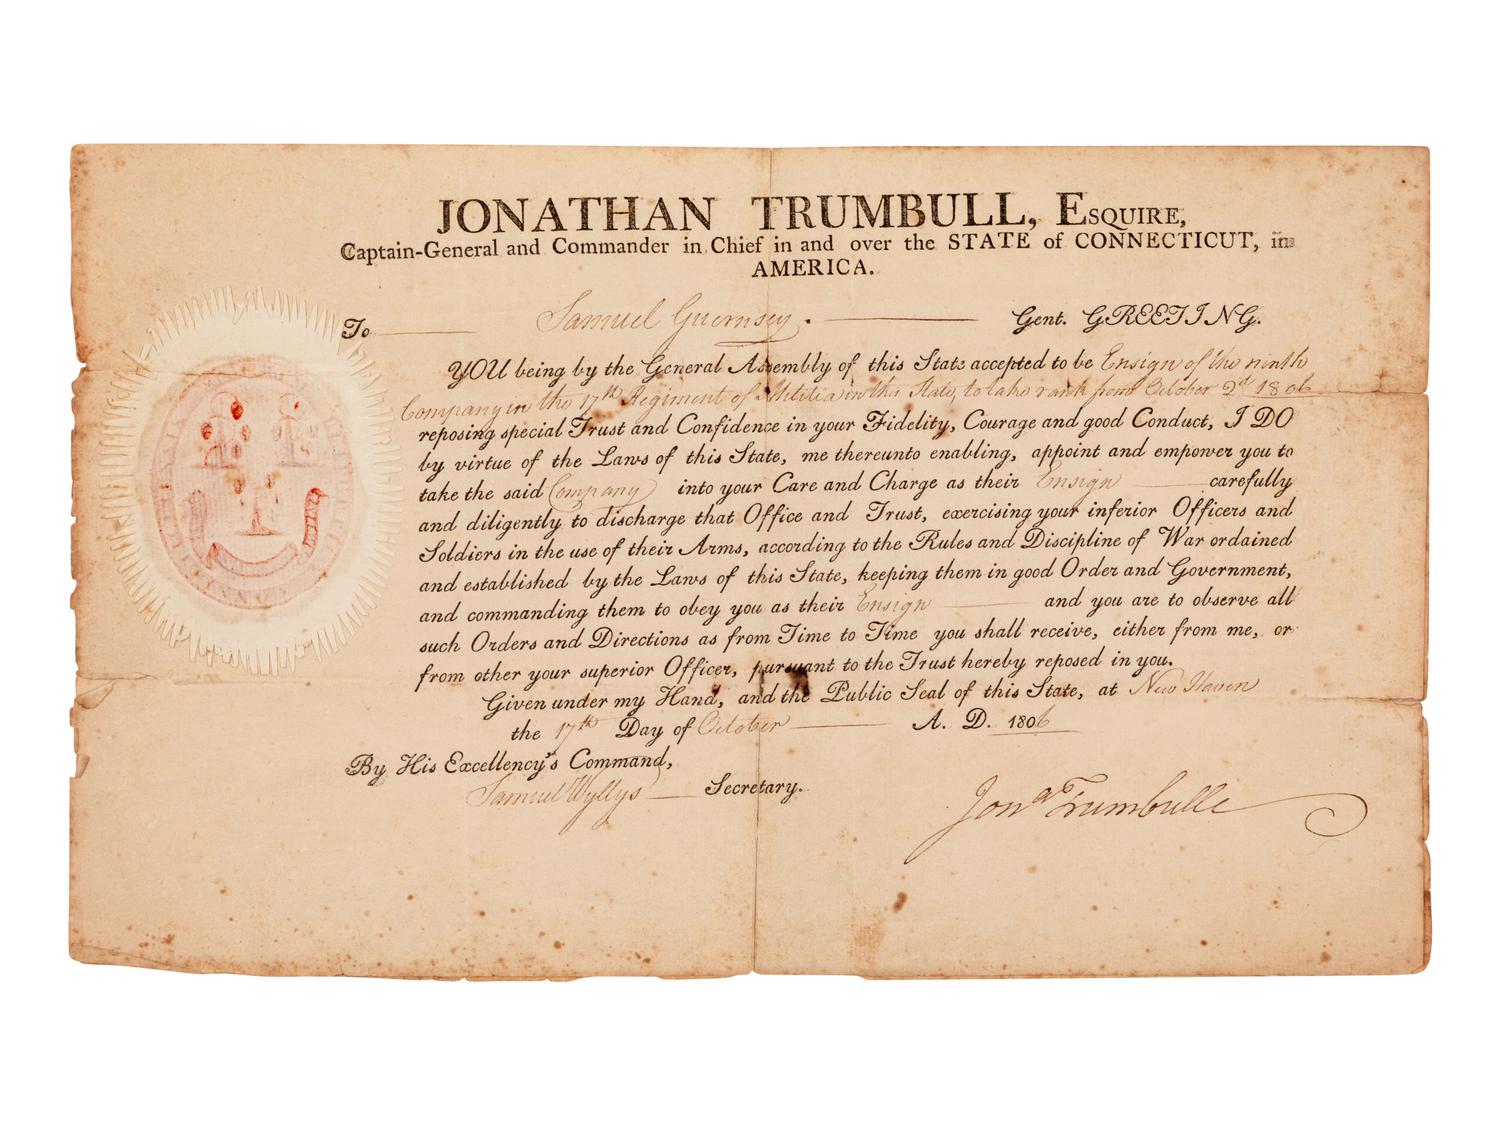 JONATHAN TRUMBULL, ESQUIRE,
Captain-General and Commander in Chief in and over the STATE of CONNECTICUT, in
AMERICA.
To Samuel Guernsey. Gent. GREETING.
YOU being by the General Assembly of this State accepted to be Ensign of the ninth
Company in the 17th Regiment of Militia in this State, to take rank from October 2d 1806
reposing special Trust and Confidence in your Fidelity, Courage and good Conduct, I DO
by virtue of the Laws of this State, me thereunto enabling, appoint and empower you to
take the said Company into your Care and Charge as their Ensign carefully
and diligently to discharge that Office and Trust, exercising your inferior Officers and
Soldiers in the use of their Arms, according to the Rules and Discipline of War ordained
and established by the Laws of this State, keeping them in good Order and Government,
and commanding them to obey you as their Ensign and you are to observe all
such Orders and Directions as from Time to Time you shall receive, either from me, or
from other your superior Officer, pursuant to the Trust hereby reposed in you.
Given under my Hand, and the Public Seal of this State, at New Haven
the 17th Day of October A. D. 1806
By His Excellency's Command,
Samuel Wyllys Secretary.
Jona Trumbull